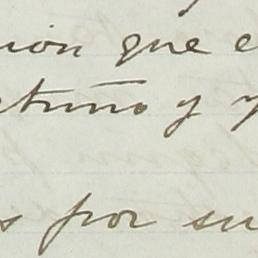 nion que e
tuno y y
s por su